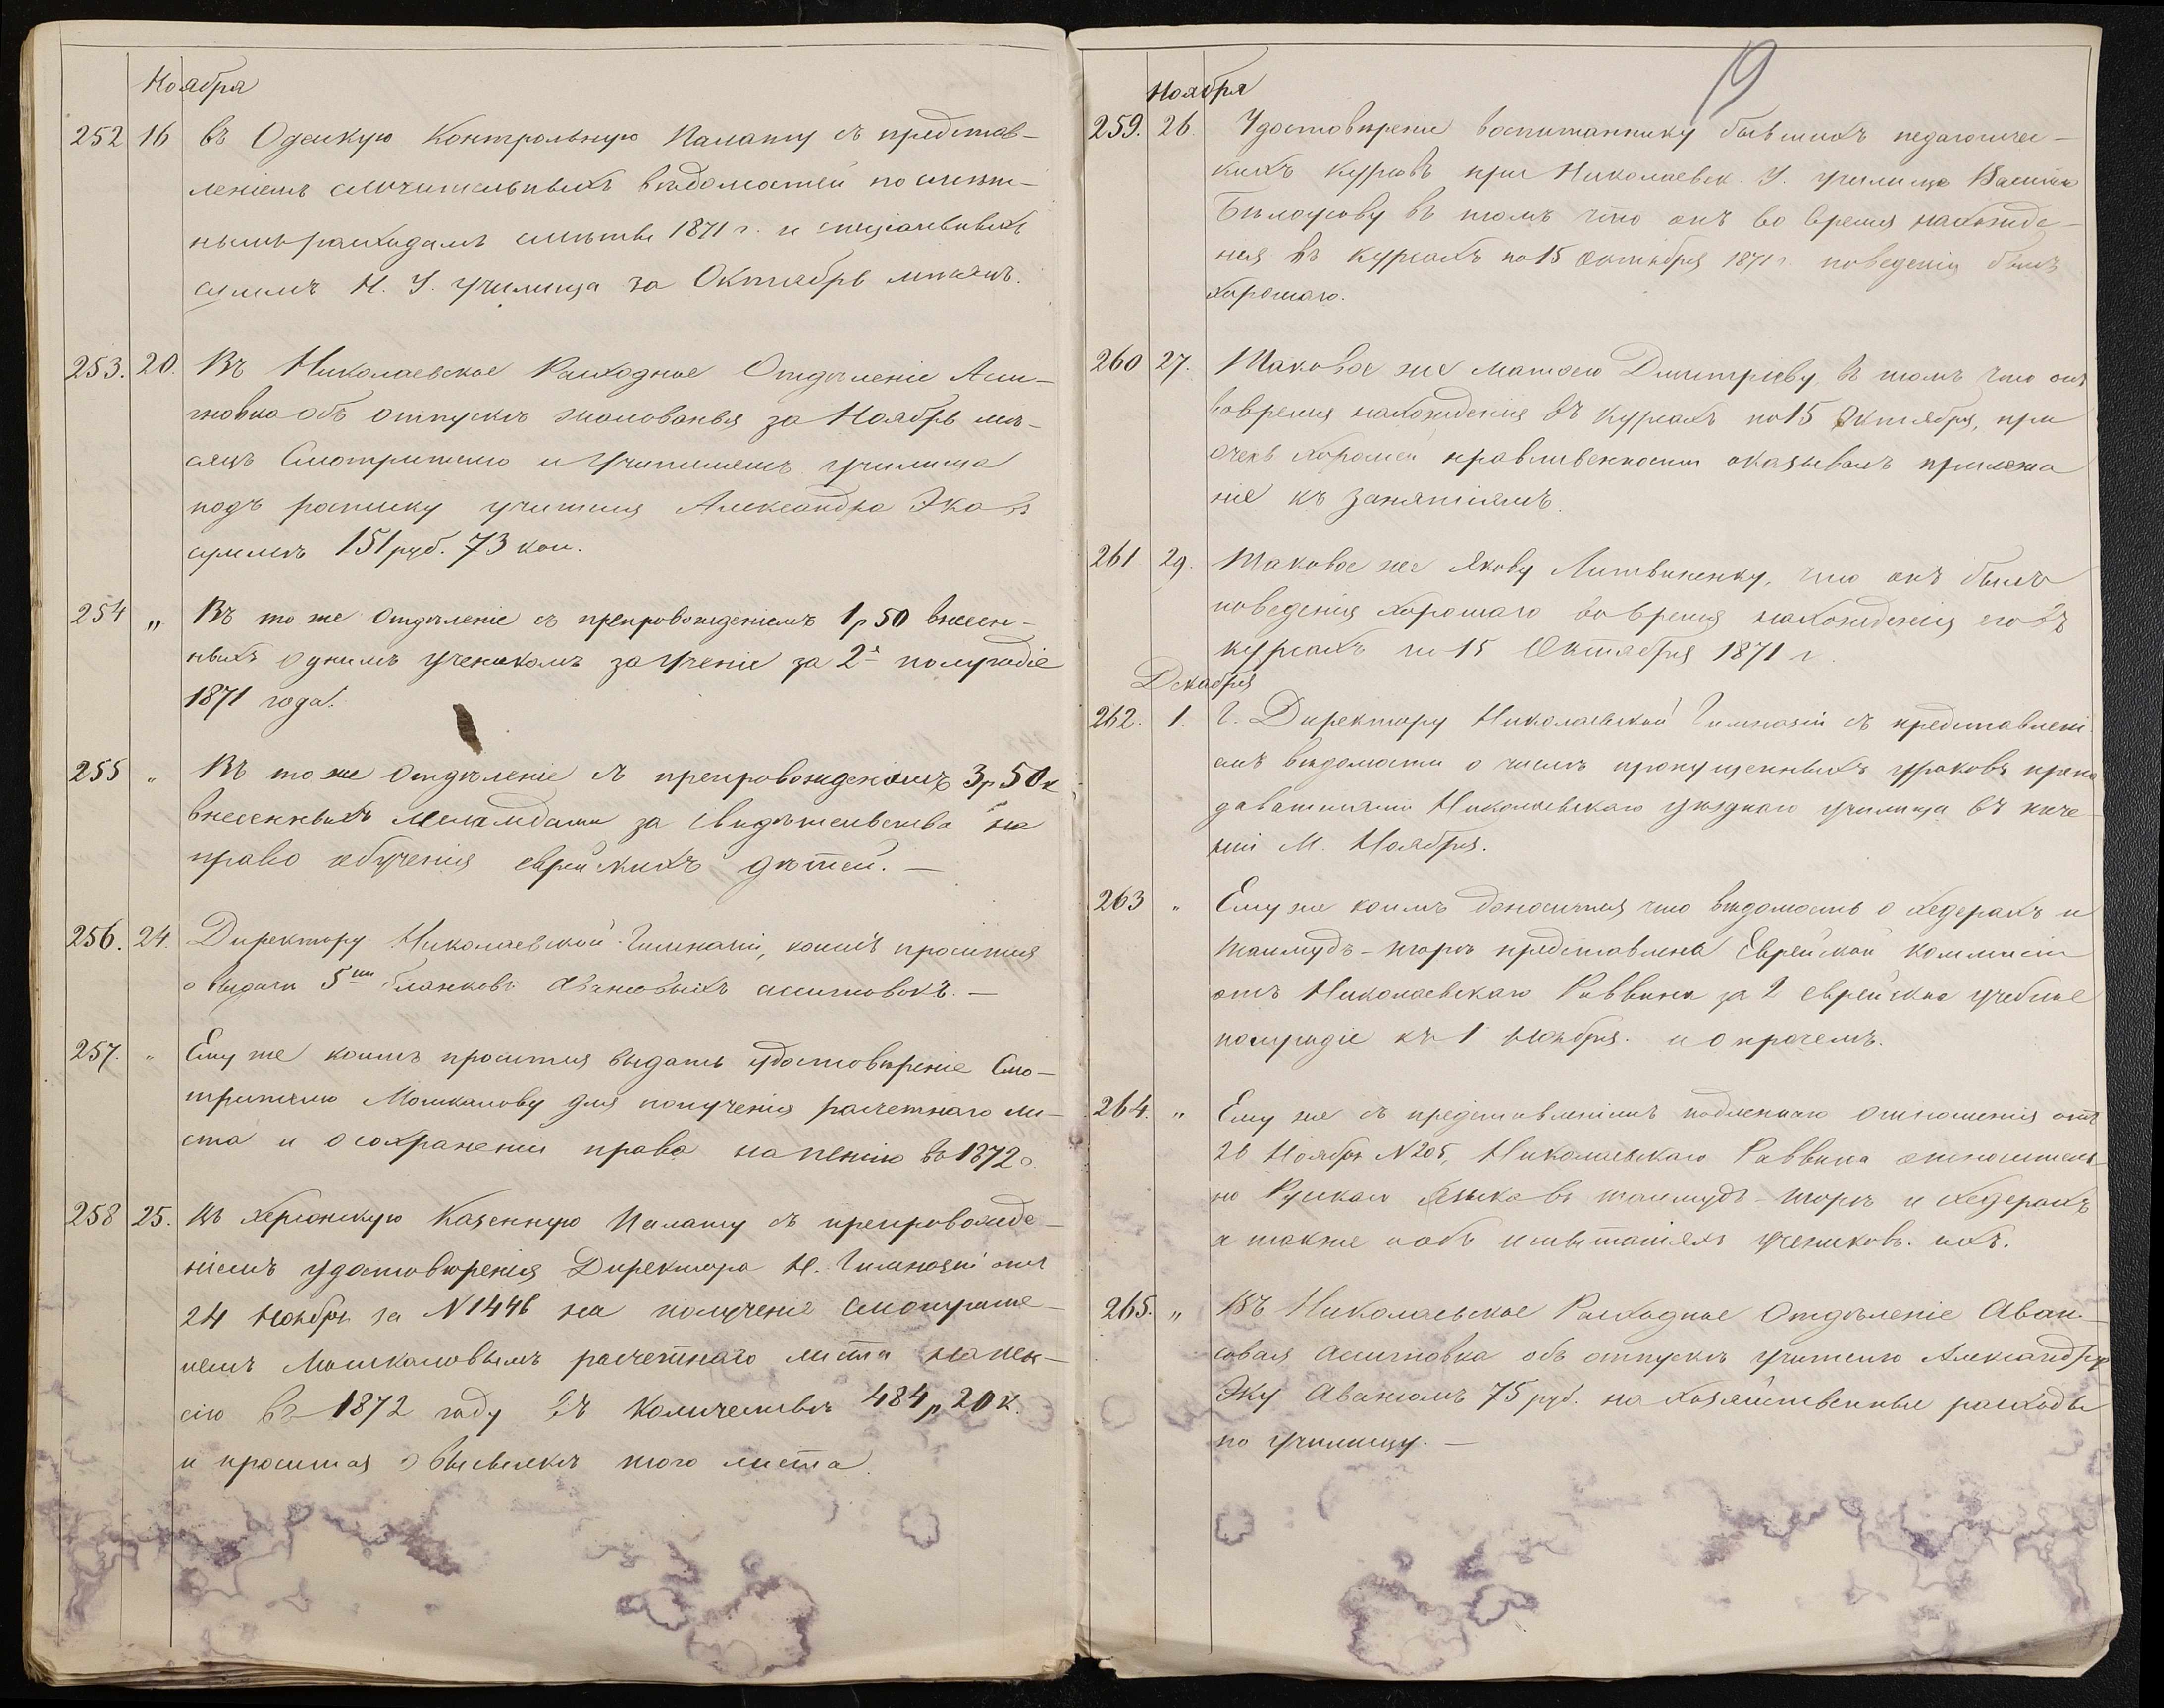 Ноября
252 16 въ Одескую Контрольную Палату съ представ-
леніемъ слѣчительныхъ вѣдомостей по смѣт-
нымъ расходамъ смѣты 1871 г. и спеціальныхъ
суммъ Н. У. училища за Октябрь мѣсяцъ.
253. 20. Въ Николаевское Расходное Отдѣленіе Асси-
гновка объ отпускѣ жалованья за Ноябрь мѣ-
сяцъ Смотрителю и Учителямъ училища
подъ росписку учителя Александра Эка въ
суммѣ 151 руб. 73 коп.
254 „ Въ то же Отдѣленіе съ препровожденіемъ 1 р 50 внесен-
ныхъ однимъ ученикомъ за ученіе за 2е полугодіе
1871 года.
255 „ Въ то же Отдѣленіе съ препровожденіемъ 3 р 50 к
внесенныхъ меламдами за свидѣтельства на
право обученія еврейскихъ дѣтей. —
256. 24. Директору Николаевской Гимназіи, коимъ просится
о выдачи 5ти бланковъ авансовыхъ ассигновокъ. —
257. „ Ему же коимъ просится выдать удостовѣреніе Смо-
трителю Мошкалову для полученія расчетнаго ли-
ста и о сохраненіи права на пенсію въ 1872 г.
258 25. Въ Херсонскую Казенную Палату съ препровожде-
ніемъ удостовѣренія Директора Н. Гимназіи отъ
24 Ноября за N 1446 на полученіе Смотрите-
лемъ Мошкаловымъ расчетнаго листа на пен-
сію въ 1872 году въ количествѣ 484 р 20 к.
и просится о высылкѣ того листа.
19
Ноября
259. 26. Удостовѣреніе воспитаннику бывшихъ педагогичес-
кихъ курсовъ при Николаевск. У. училищѣ Василію
Бѣлоусову въ томъ что онъ во время нахожде-
нія въ курсахъ по 15 Октября 1871 г. поведенія былъ
хорошаго.
260 27. Таковое же Матвею Дмитріеву, въ томъ что онъ
вовремя нахожденія въ курсахъ по 15 Октября, при
очень хорошей нравственности оказывалъ прилежа
ніе къ занятіямъ.
261 29. Таковое же Якову Литвиненку, что онъ былъ
поведенія хорошаго во время нахожденія его въ
курсахъ по 15 Октября 1871 г.
Декабря
262. 1. Г. Директору Николаевской Гимназіи съ представлені
емъ вѣдомости о числѣ пропущенныхъ уроковъ препо
давателями Николаевскаго уѣзднаго училища въ тече-
ніи М. Ноября.
263 „ Ему же коимъ доносится что вѣдомость о хедерахъ и
талмудъ-торѣ представлены Еврейской коммисіи
отъ Николаевскаго Раввина за 2 еврейское учебное
полугодіе къ 1 Ноября. и о прочемъ.
264. „ Ему же съ представленіемъ подленнаго отношенія отъ
26 Ноября N 205, Николаевскаго Раввина относитель-
но Рускаго Языка въ талмудъ-торѣ и хедерахъ
а также и объ испытаніяхъ учениковъ. ихъ.
265. „ Въ Николаевское Расходное Отдѣленіе Аван-
совая Ассигновка объ отпускѣ учителю Александру
Эку Авансомъ 75 руб. на хозяйственные расходы
по училищу. —